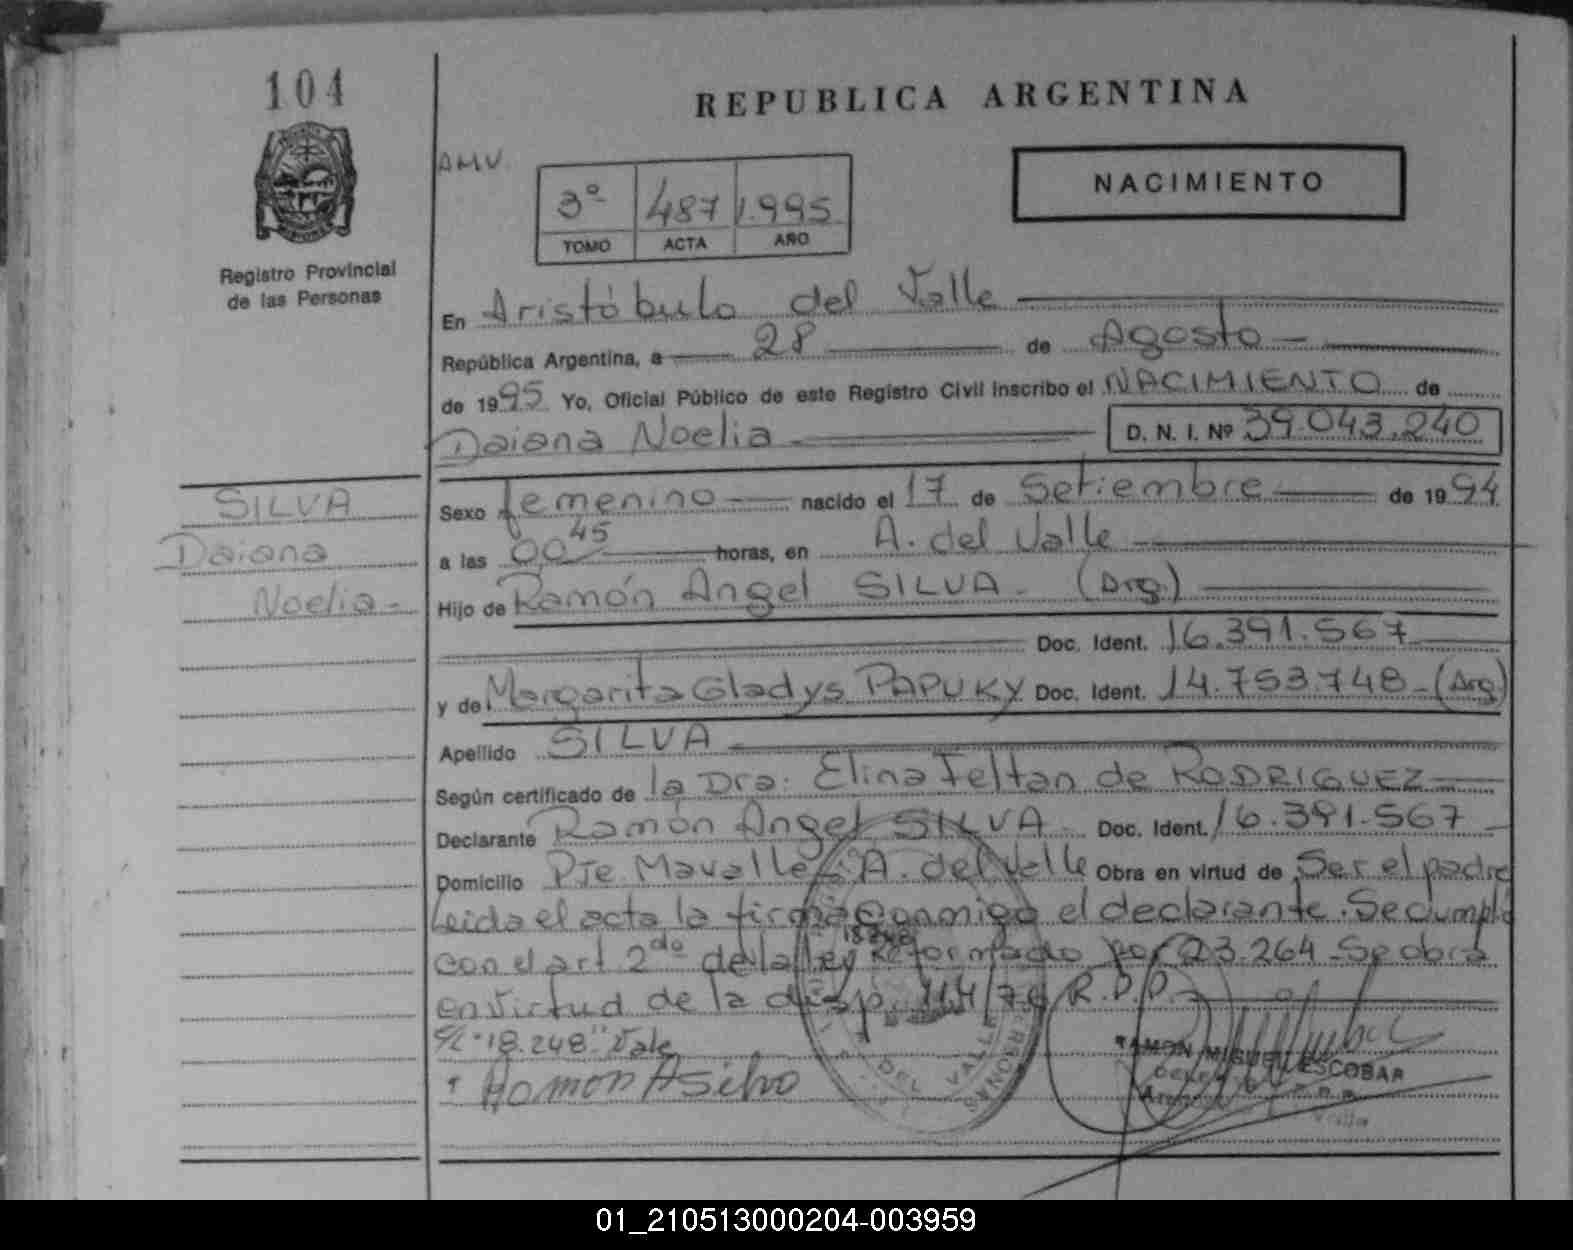 104
REPUBLICA ARGENTINA
AMV.
NACIMIENTO
3º 487 1.995
TOMO ACTA AÑO
Registro Provincial
de las Personas
En Aristóbulo del Valle
República Argentina, a 28 de Agosto
de 1995 Yo, Oficial Público de este Registro Civil inscribo el NACIMIENTO de
Daiana Noelia D. N. I. Nº 39.043.240
SILVA
Daiana
Noelia.-
Sexo femenino nacido el 17 de Setiembre de 1994
a las 00 45 horas, en A. del Valle
Hijo de Ramón Angel SILVA - (Arg.)
Doc. Ident. 16.391.567
y de Margarita Gladys PAPUKY Doc. Ident. 14.753.748 - (Arg)
Apellido SILVA
Según certificado de la Dra: Elina Feltan de RODRIGUEZ
Declarante Ramón Angel SILVA Doc. Ident. 16.391.567
Domicilio Pje. Mavalle - A. del Valle Obra en virtud de Ser el padre
Leida el acta la firma conmigo el declarante. Se cumplió
18248
con el art 2do de la ley Reformado por 23.264 - Se obra
en virtud de la disp. 114/76 R.P.P.
S/L "18.248" Vale
Ramon A Silva
DEL VALLE
MISIONES
RAMON MIGUEL ESCOBAR
01_210513000204-003959